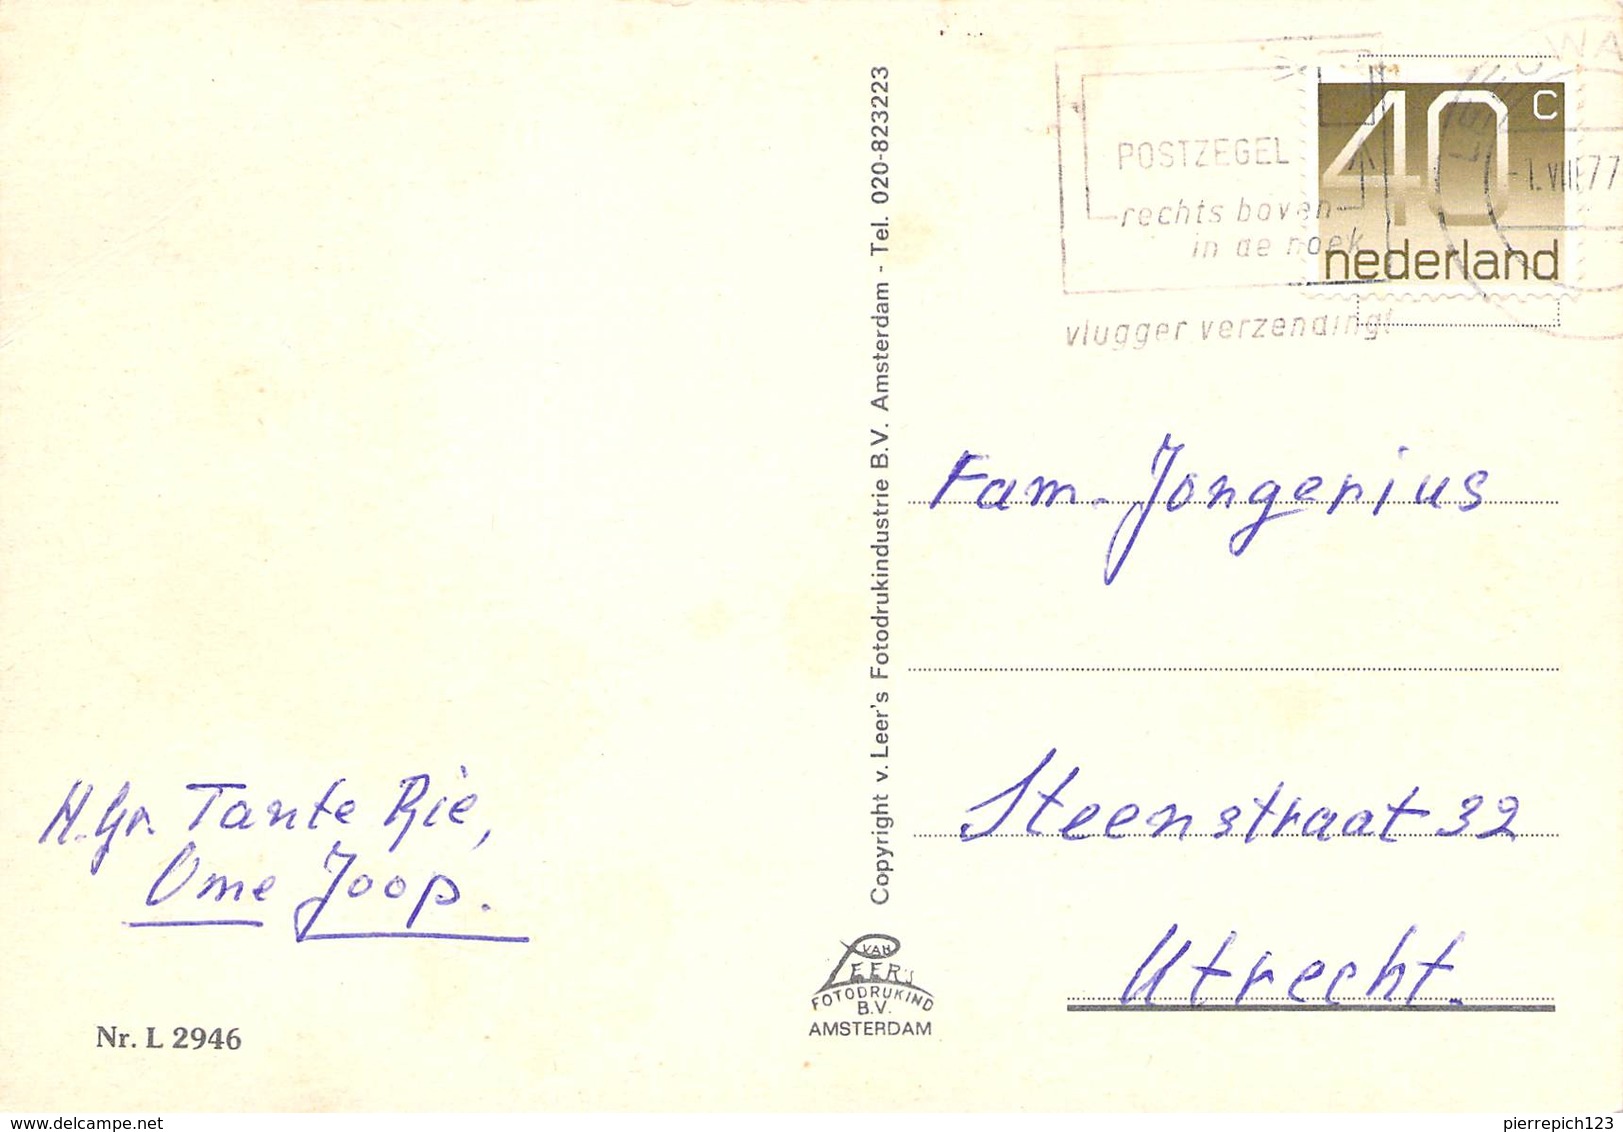 POSTZEGEL
rechts boven
in de hoek
vlugger verzending!
40 C
nederland
LEEUWA
-1.VII.77
Copyright v. Leer's Fotodrukindustrie B.V. Amsterdam - Tel. 020-823223
Fam. Jongerius
Steenstraat 32
Utrecht.
H. Gr. Tante Rie,
Ome Joop.
VAN
LEER'S
FOTODRUKIND
B.V.
AMSTERDAM
Nr. L 2946
delcampe.net
pierrepich123